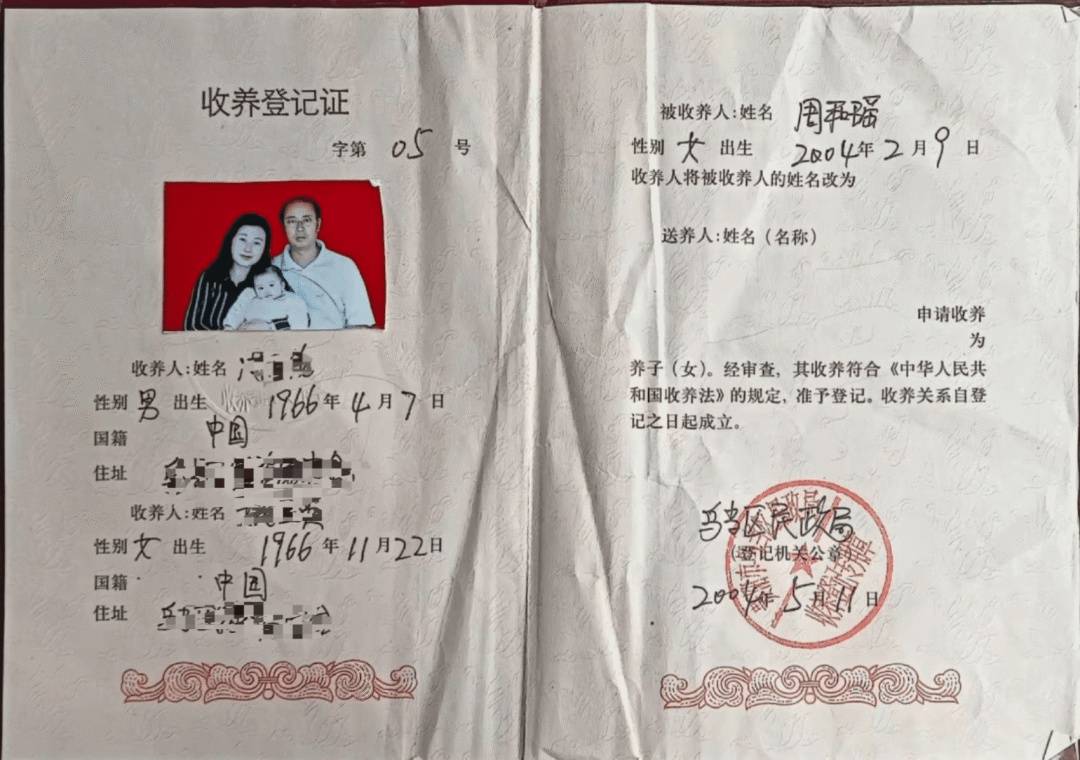 收养登记证
字第 05 号
收养人:姓名
性别 男 出生 1966年4月7日
国籍 中国
住址
收养人:姓名
性别女 出生 1966年11月22日
国籍 中国
住址
被收养人:姓名 周
性别 女 出生 2004年2月9日
收养人将被收养人的姓名改为
送养人:姓名(名称)
申请收养
为
养子(女)。经审查,其收养符合《中华人民共
和国收养法》的规定,准予登记。收养关系自登
记之日起成立。
乌当区民政局
(登记机关公章)
2004年5月11日